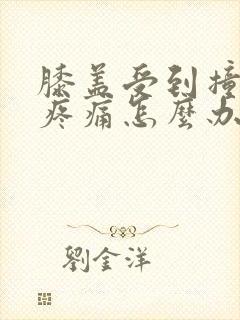 膝盖受到撞
疼痛怎麼办
劉金洋